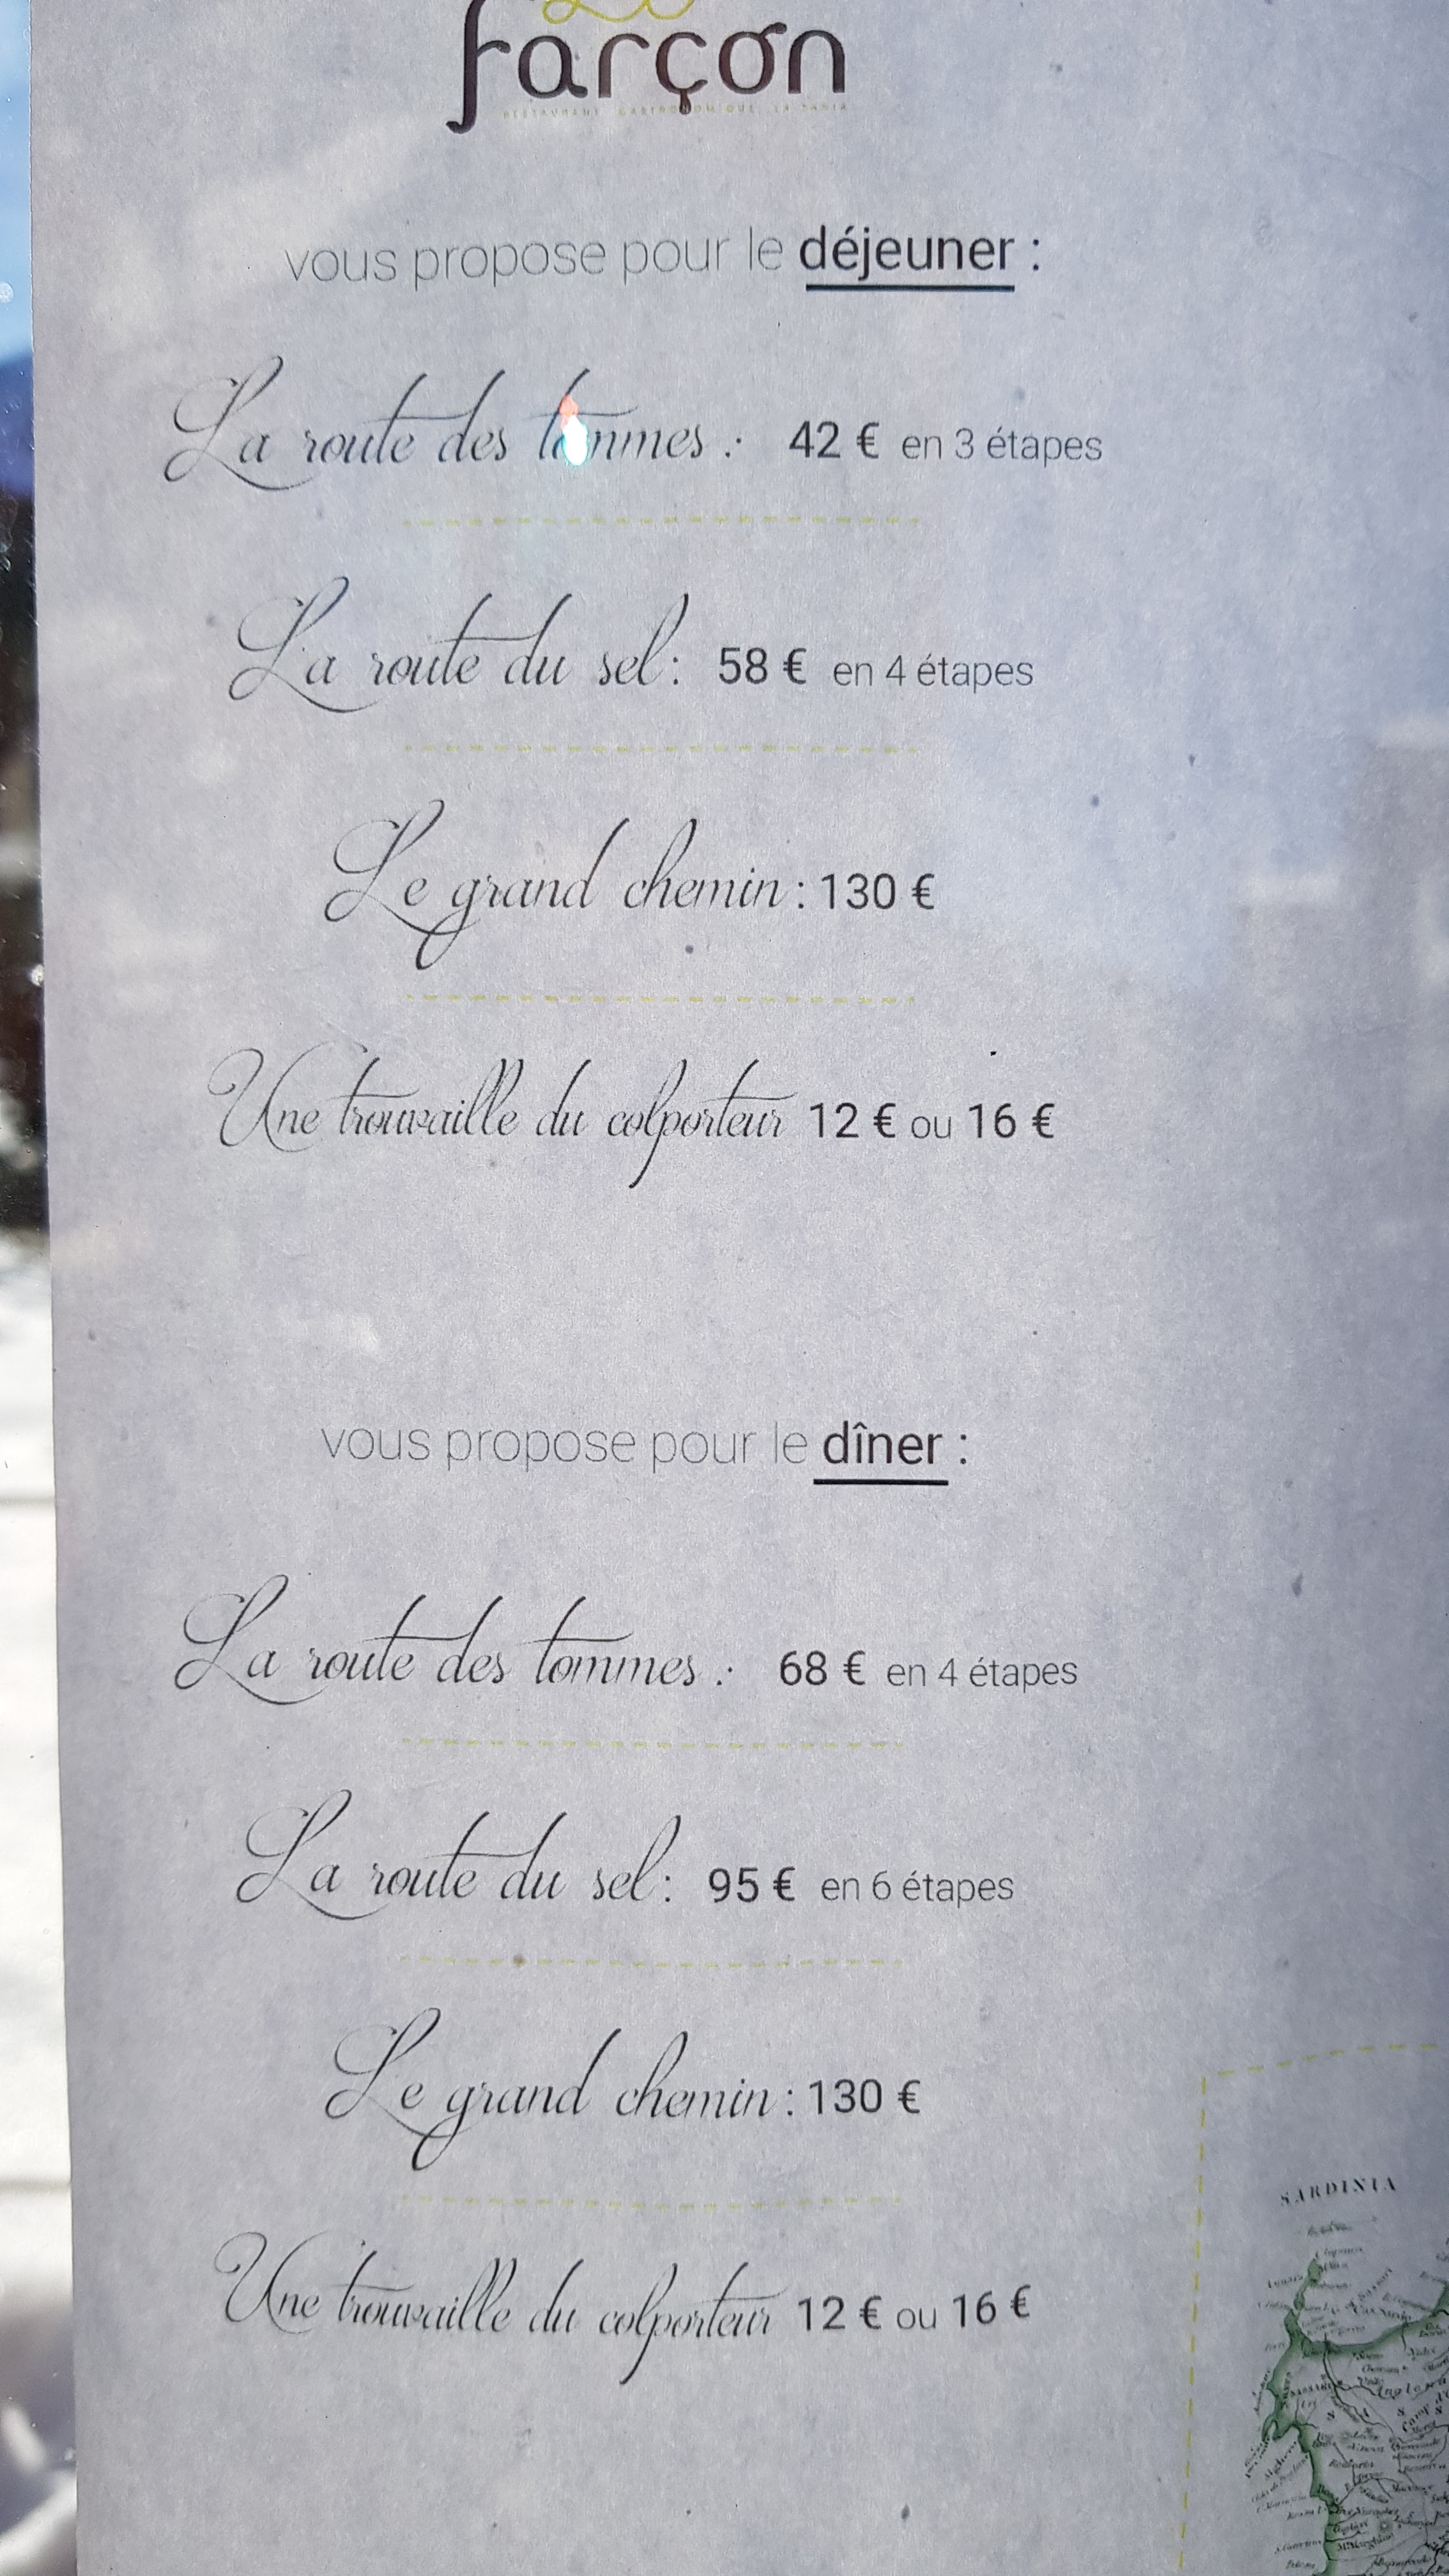 Le
farçon
RESTAURANT GASTRONOMIQUE LA TANIA
vous propose pour le déjeuner :
La route des tommes : 42 € en 3 étapes
La route du sel : 58 € en 4 étapes
Le grand chemin : 130 €
Une trouvaille du colporteur 12 € ou 16 €
vous propose pour le dîner :
La route des tommes : 68 € en 4 étapes
La route du sel : 95 € en 6 étapes
Le grand chemin : 130 €
Une trouvaille du colporteur 12 € ou 16 €
SARDINIA